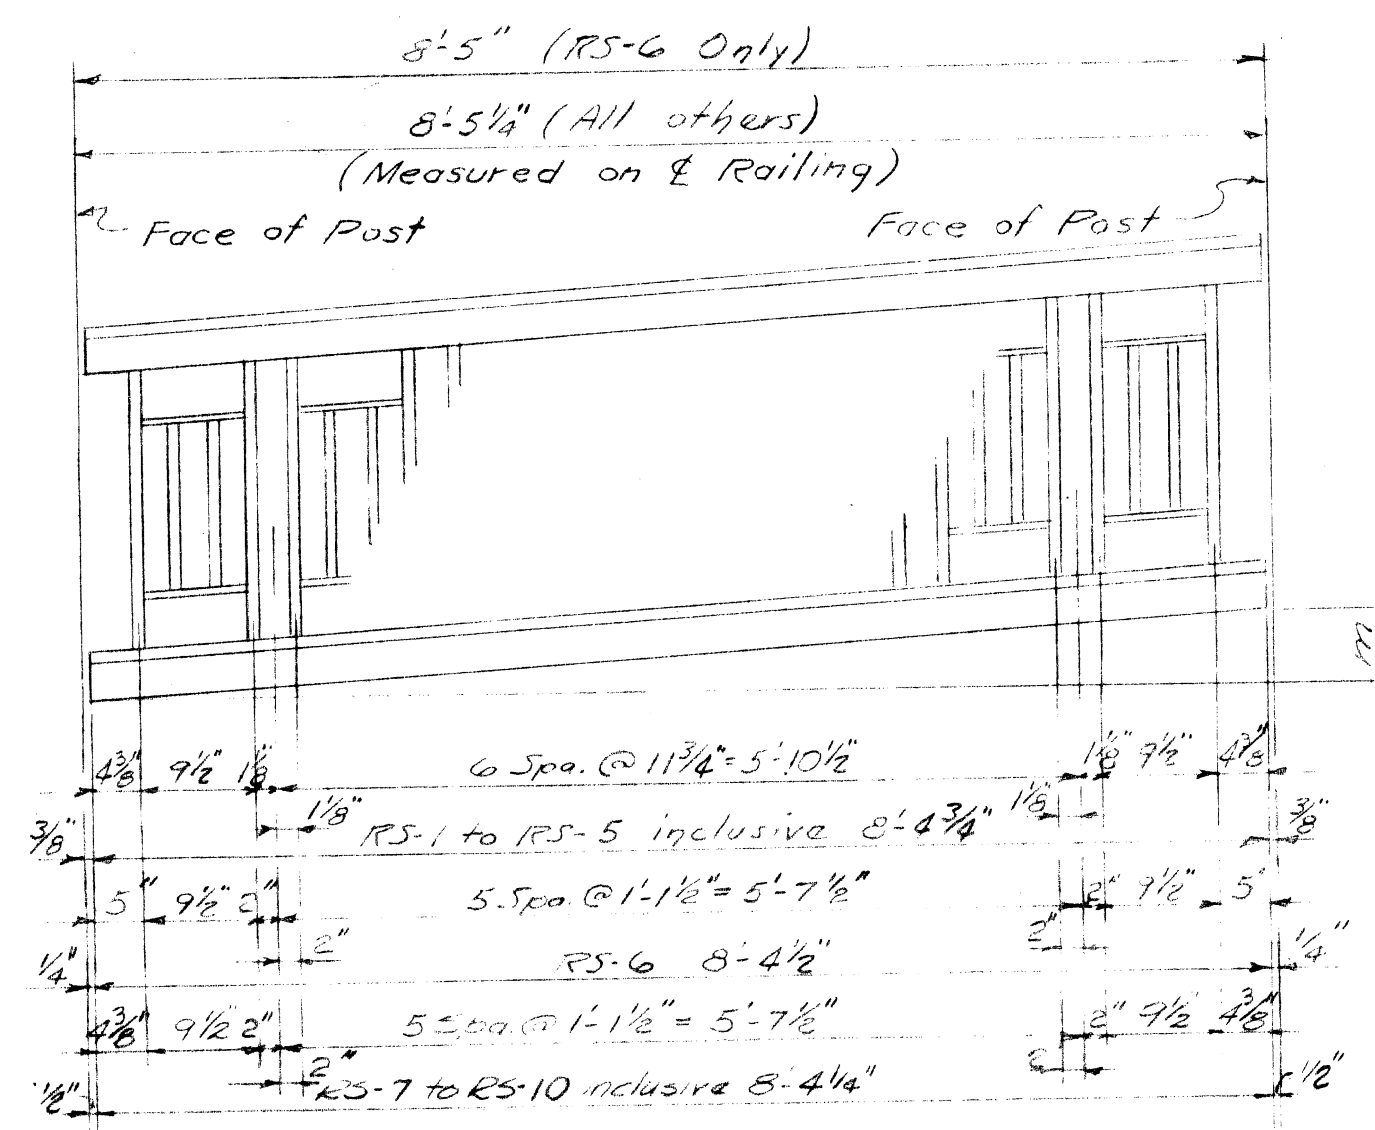 8'-5" (RS-6 Only)
8'-5¼" (All others)
(Measured on ℄ Railing)
Face of Post
Face of Post
4⅜" 9½" 1⅛" 6 Spa. @ 11¾" = 5'-10½" 1⅛" 9½" 4⅜"
1⅛" 1⅛"
⅜" RS-1 to RS-5 inclusive 8'-4¾" ⅜"
5" 9½" 2" 5 Spa. @ 1'-1½" = 5'-7½" 2" 9½" 5'
2" 2"
¼" RS-6 8'-4½" ¼"
4⅜" 9½ 2" 5 Spa. @ 1'-1½" = 5'-7½" 2" 9½ 4⅜"
2" 2
½" RS-7 to RS-10 inclusive 8'-4¼" ½"